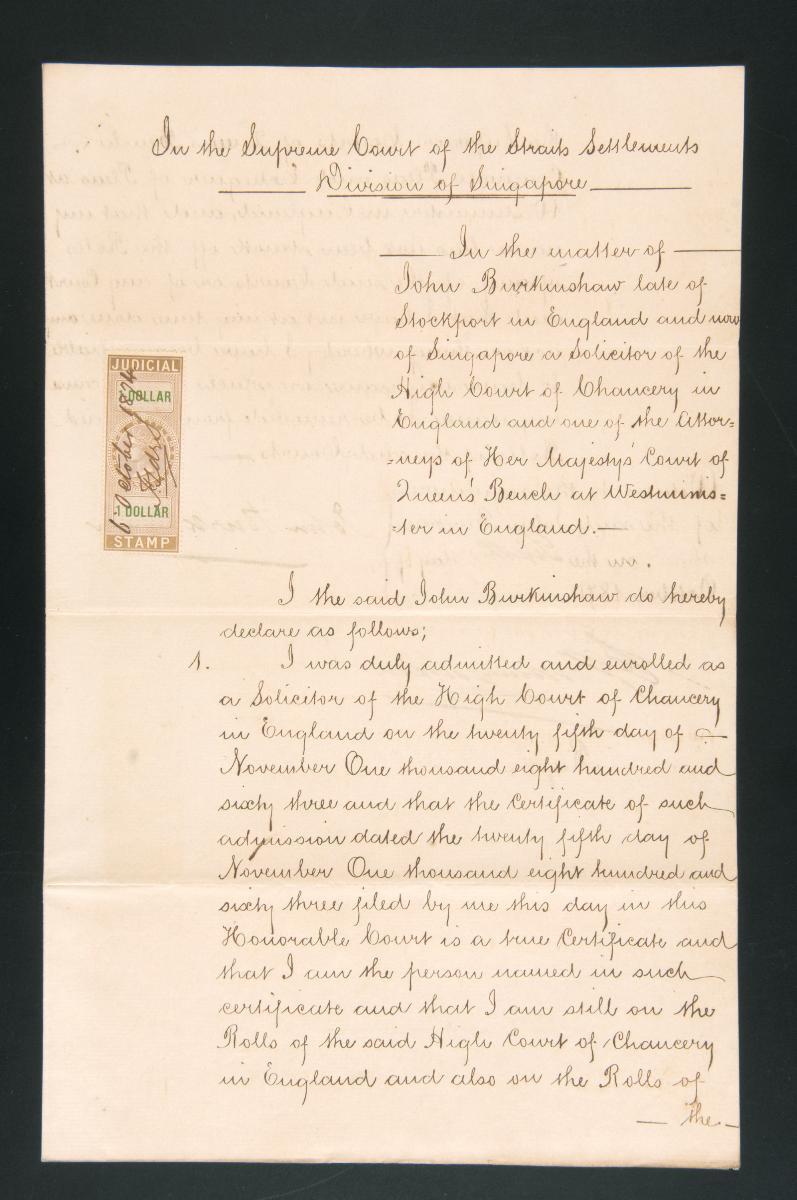 In the Supreme Court of the Straits Settlements
Division of Singapore
In the matter of
John Burkinshaw late of
Stockport in England and now
of Singapore a Solicitor of the
High Court of Chancery in
England and one of the Attor=
=neys of Her Majesty's Court of
Queen's Bench at Westminis=
=ter in England.—
JUDICIAL
1 DOLLAR
1 DOLLAR
STAMP
6 October 1874
I the said John Burkinshaw do hereby
declare as follows;
1. I was duly admitted and enrolled as
a Solicitor of the High Court of Chancery
in England on the twenty fifth day of
November One thousand eight hundred and
sixty three and that the Certificate of such
admission dated the twenty fifth day of
November One thousand eight hundred and
sixty three filed by me this day in this
Honorable Court is a true Certificate and
that I am the person named in such
certificate and that I am still on the
Rolls of the said High Court of Chancery
in England and also on the Rolls of
— the —